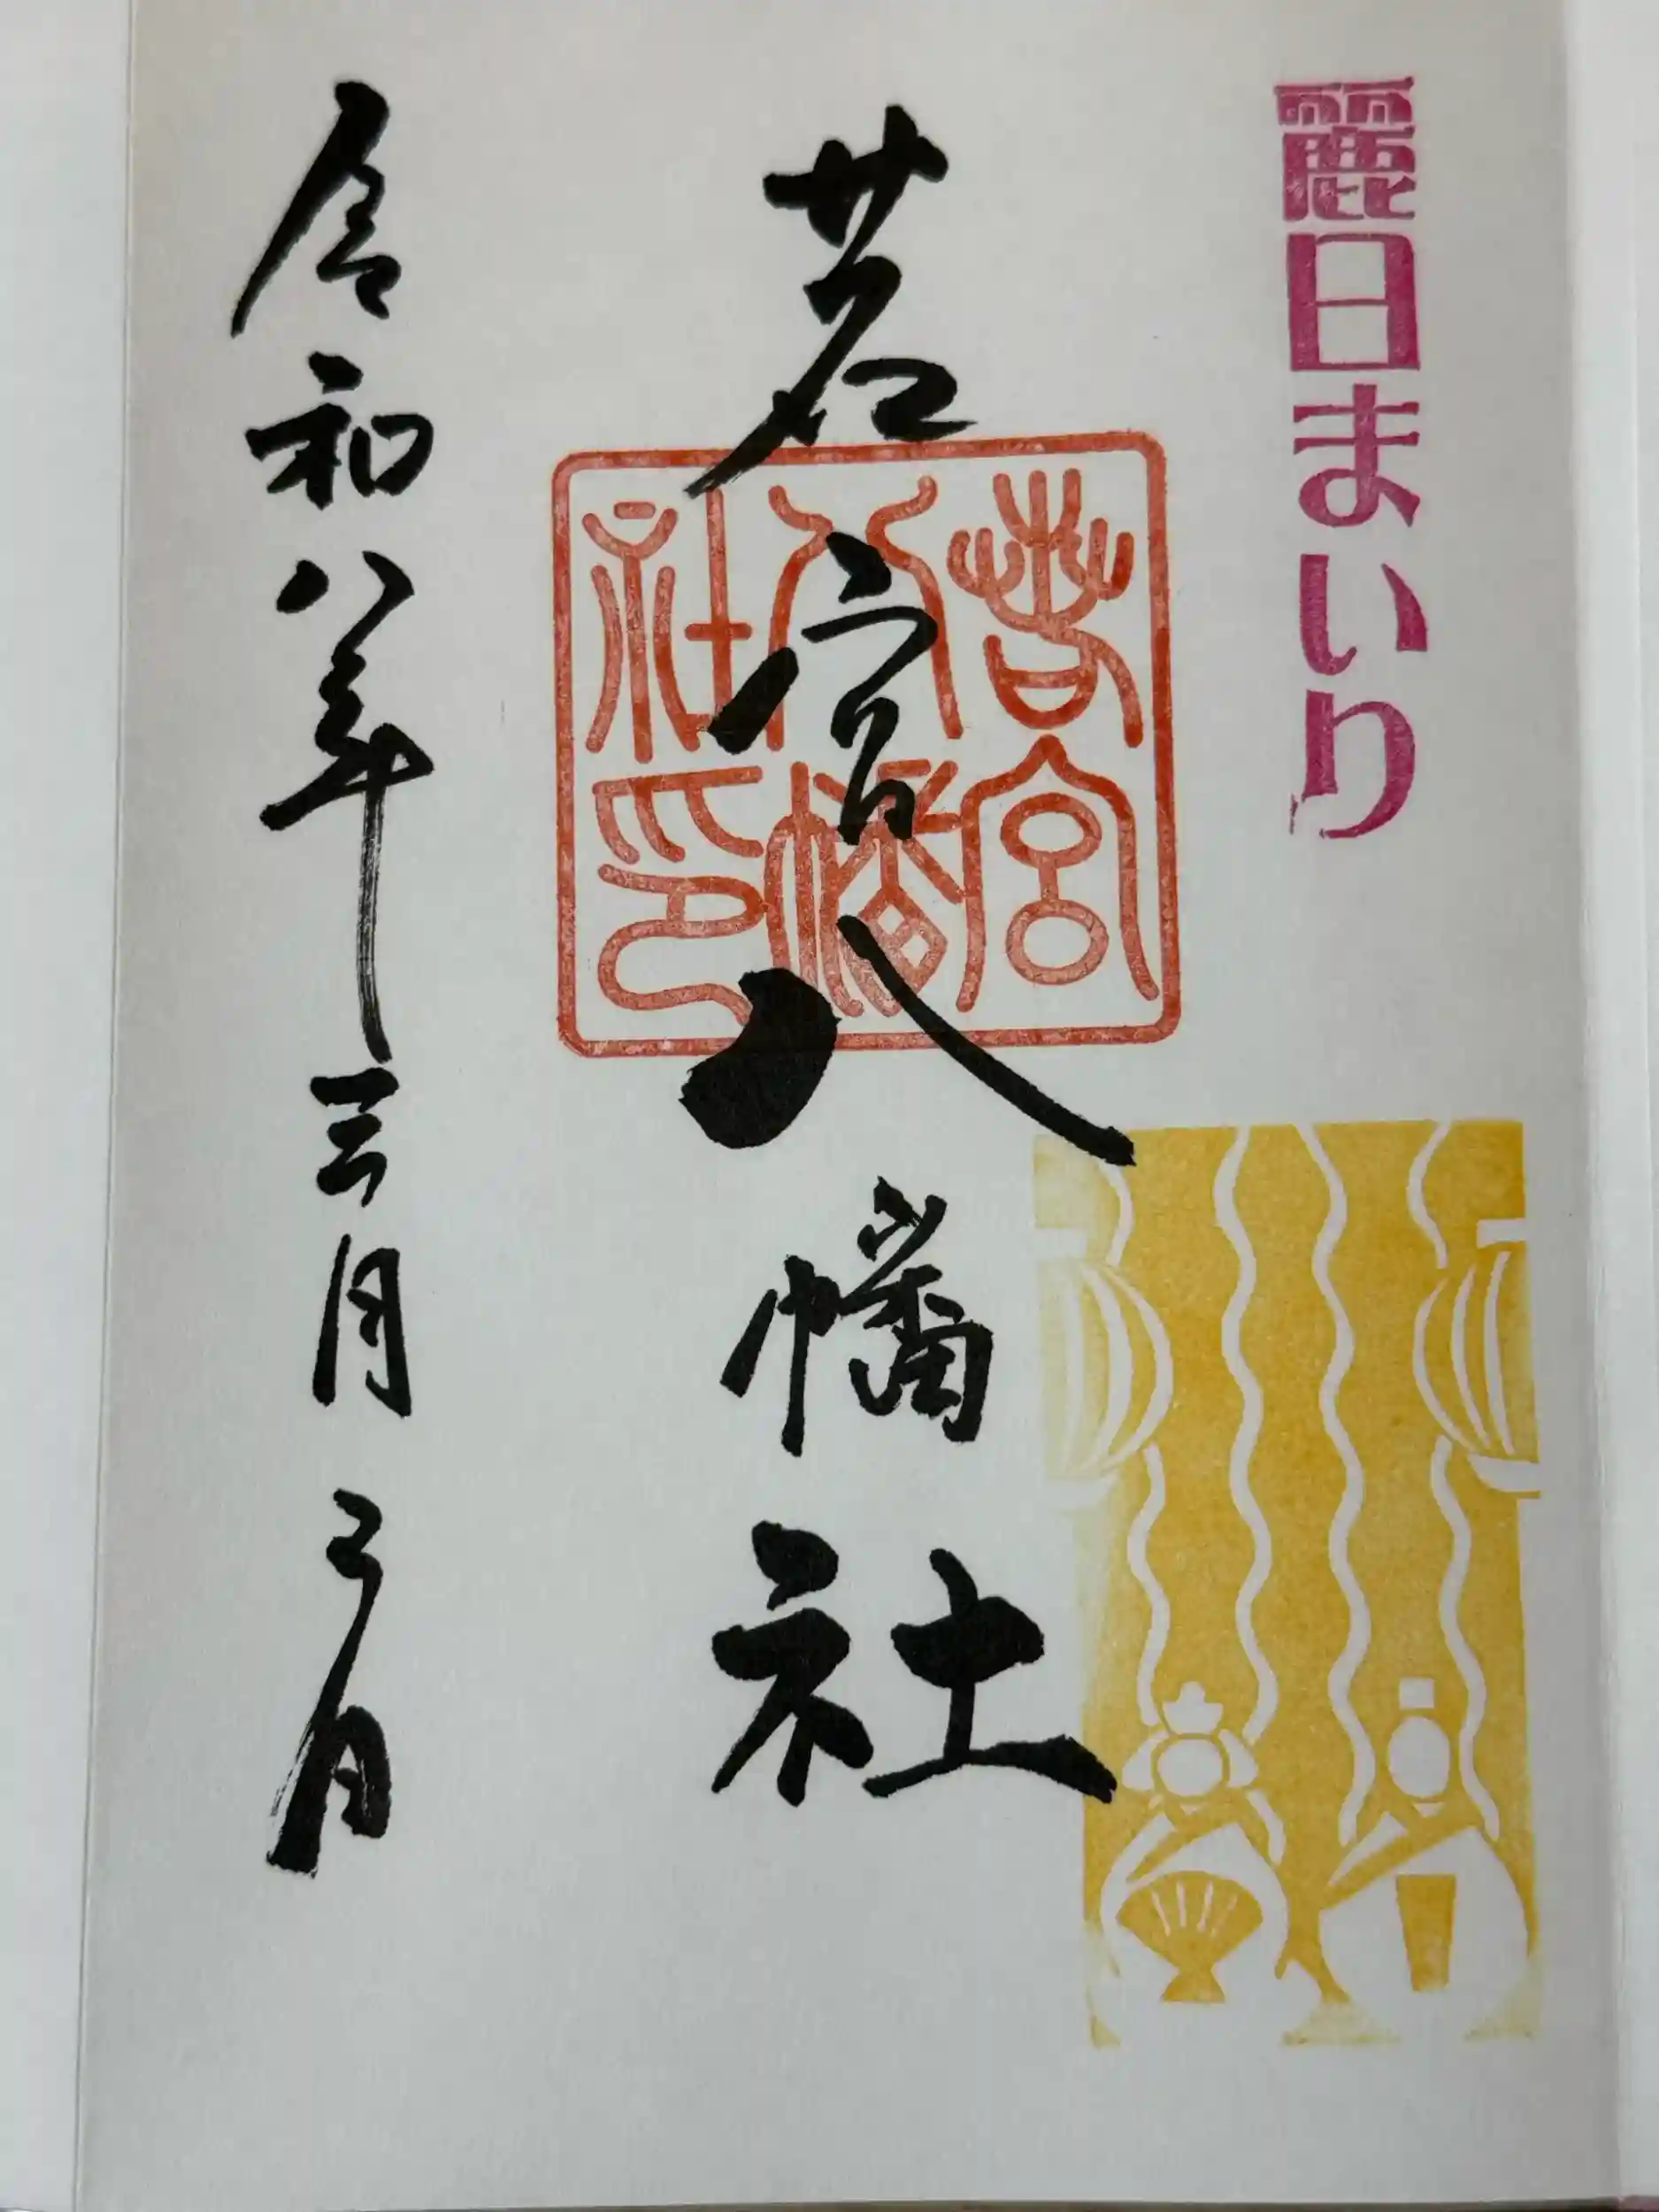 麗日まいり
若宮八幡社
若宮
八幡
社印
令和八年三月三日